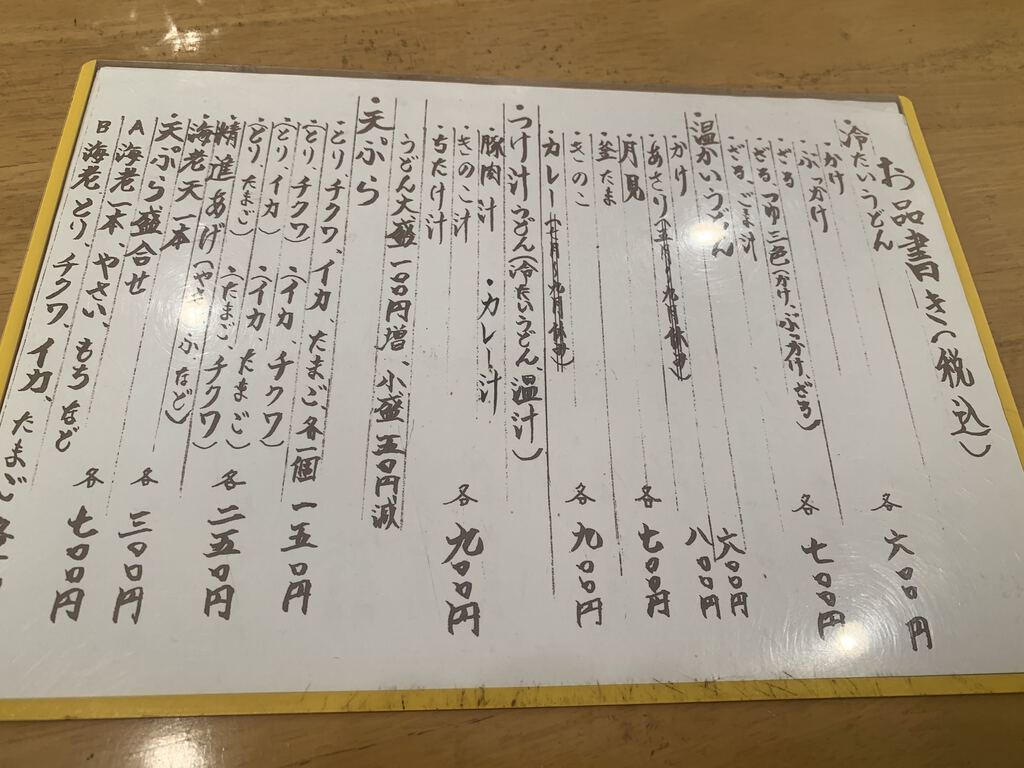 お品書き(税込)
冷たいうどん
・かけ
・ぶっかけ 各 六〇〇円
・ざる
・ざる つゆ二色(かけ、ぶっかけ、ざる)
・ざる、ごま汁 各 七〇〇円
・温かいうどん
かけ 六〇〇円
・あさり(五月〜九月休中) 八〇〇円
・月見
・釜たま 各 七〇〇円
・きのこ
・カレー(七月〜九月休中) 各 九〇〇円
・つけ汁うどん(冷たいうどん、温汁)
豚肉汁 ・カレー汁
・きのこ汁
・ちたけ汁 各 九〇〇円
うどん大盛 一〇〇円増、小盛 五〇円減
・天ぷら
・とり、チクワ、イカ たまご、各一個 一五〇円
・(とり、チクワ) (イカ、チクワ)
・(とり、イカ) (イカ、たまご)
・(とり たまご) (たまご、チクワ)
・精進あげ( など) 各 二五〇円
・海老天一本
・天ぷら盛合せ 各 三〇〇円
A 海老一本、やさい、もち など
B 海老 とり、チクワ、イカ、たまご 各 七〇〇円